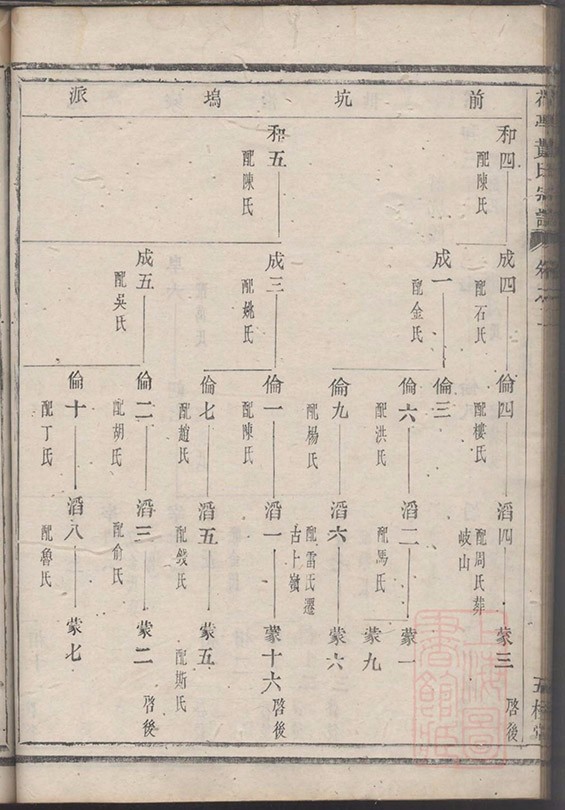 前坑塢派
和四
配陳氏
成四
配石氏
倫四
配樓氏
滔四
配周氏葬
岐山
蒙三
啓後
倫三
成一
配金氏
倫六
配洪氏
滔二
配馬氏
蒙一
蒙九
倫九
配楊氏
滔六
配雷氏遷
古上嶺
蒙六
和五
配陳氏
成三
配姚氏
倫一
配陳氏
滔一
蒙十六
啓後
倫七
配趙氏
滔五
配錢氏
蒙五
配斯氏
成五
配吳氏
倫二
配胡氏
滔三
配俞氏
蒙二
啓後
倫十
配丁氏
滔八
配魯氏
蒙七
黃氏宗譜
五桂堂
上海圖書館藏